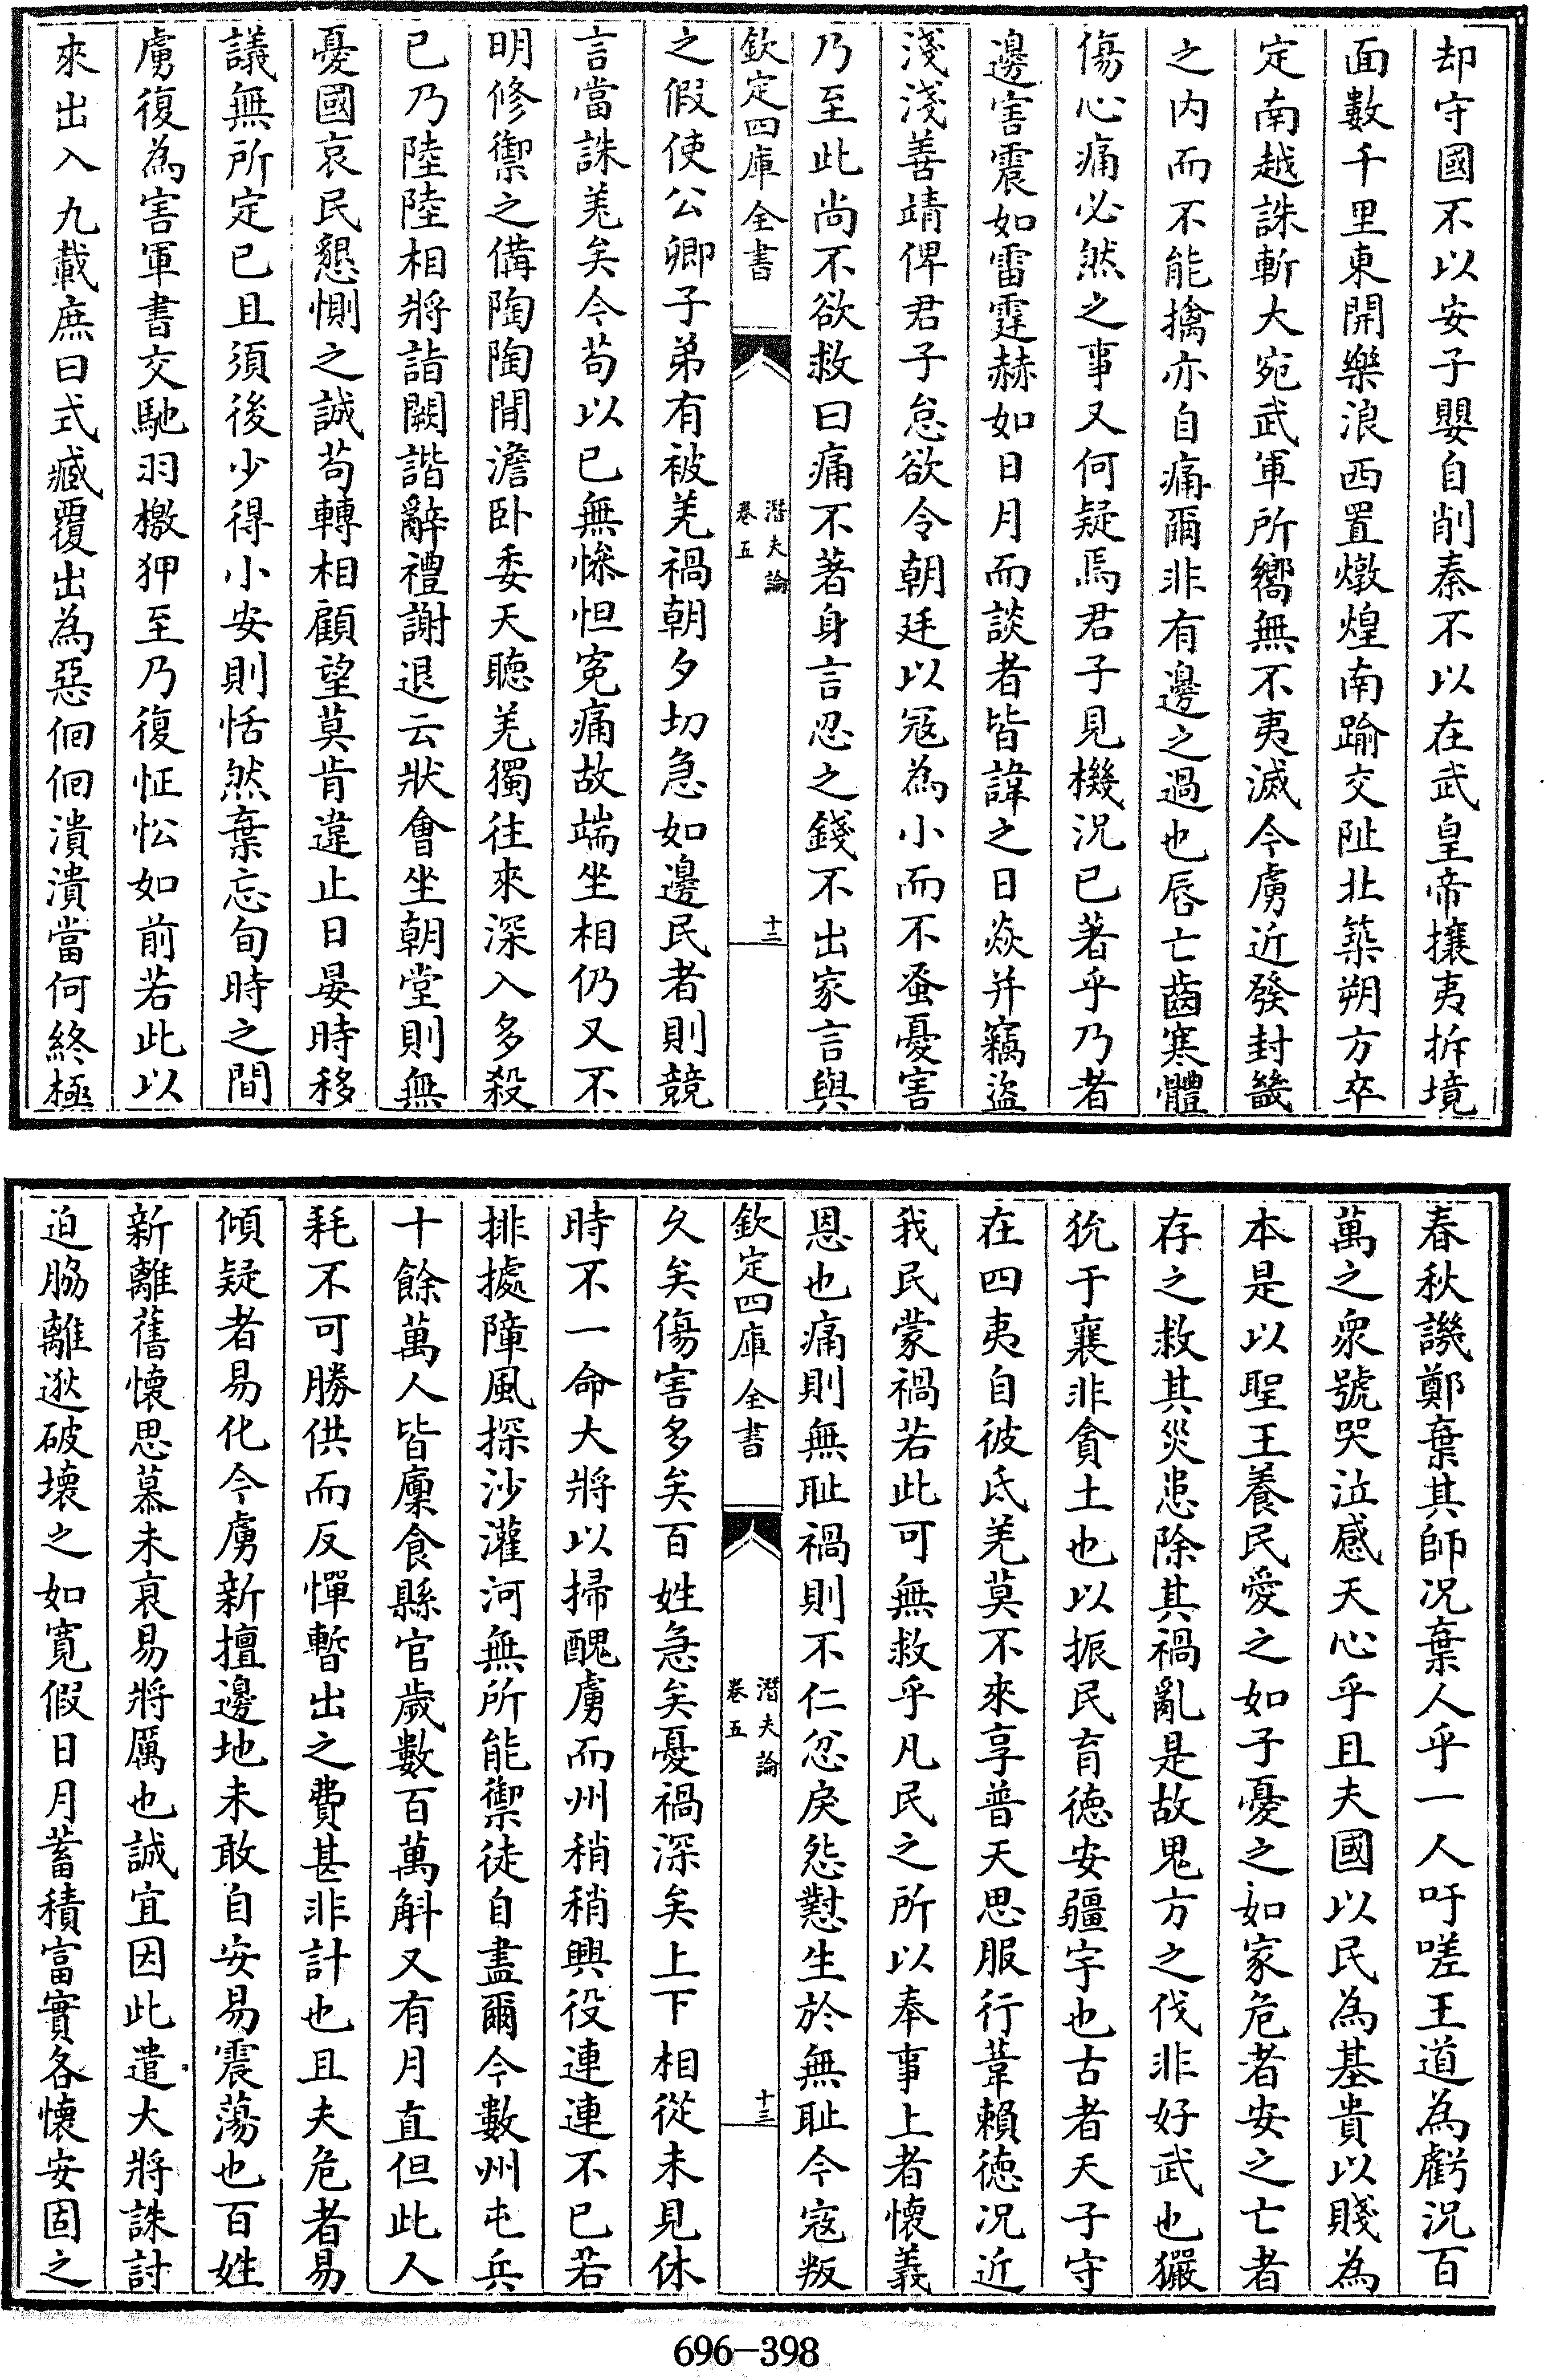 却守國不以安子嬰自削秦不以在武皇帝攘夷拆境
面數千里東開樂浪西置燉煌南踰交阯北築朔方卒
定南越誅斬大宛武軍所嚮無不夷滅今虜近發封畿
之内而不能擒亦自痛爾非有邊之過也唇亡齒寒體
傷心痛必然之事又何疑焉君子見機況已著乎乃者
邊害震如雷霆赫如日月而談者皆諱之曰焱并竊盜
淺淺善靖俾君子怠欲令朝廷以冦為小而不蚤憂害
乃至此尚不欲救曰痛不著身言忍之錢不出家言與
欽定四庫全書
潛夫論
卷五
十二
之假使公卿子弟有被羌禍朝夕切急如邊民者則競
言當誅羌矣今苟以已無慘怛寃痛故端坐相仍又不
明修禦之備陶陶閒澹卧委天聽羌獨往來深入多殺
已乃陸陸相將詣闕諧辭禮謝退云狀會坐朝堂則無
憂國哀民懇惻之誠苟轉相顧望莫肯違止日晏時移
議無所定已且須後少得小安則恬然棄忘旬時之間
虜復為害軍書交馳羽檄狎至乃復怔忪如前若此以
來出入九載庶曰式臧覆出為惡佪佪潰潰當何終極
春秋譏鄭棄其師况棄人乎一人吁嗟王道為虧況百
萬之衆號哭泣感天心乎且夫國以民為基貴以賤為
本是以聖王養民愛之如子憂之如家危者安之亡者
存之救其災患除其禍亂是故鬼方之伐非好武也玁
狁于襄非貪土也以振民育徳安疆宇也古者天子守
在四夷自彼氐羌莫不來享普天思服行葦賴徳况近
我民蒙禍若此可無救乎凡民之所以奉事上者懷義
恩也痛則無恥禍則不仁忿戾怨懟生於無恥今寇叛
欽定四庫全書
潛夫論
卷五
十三
久矣傷害多矣百姓急矣憂禍深矣上下相從未見休
時不一命大將以掃醜虜而州稍稍興役連連不已若
排㨿障風探沙灌河無所能禦徒自盡爾今數州屯兵
十餘萬人皆廩食縣官歲數百萬斛又有月直但此人
耗不可勝供而反憚暫出之費甚非計也且夫危者易
傾疑者易化今虜新擅邊地未敢自安易震蕩也百姓
新離舊懷思慕未衰易將厲也誠宜因此遣大將誅討
迫脇離逖破壞之如寛假日月蓄積富實各懷安固之
696-398